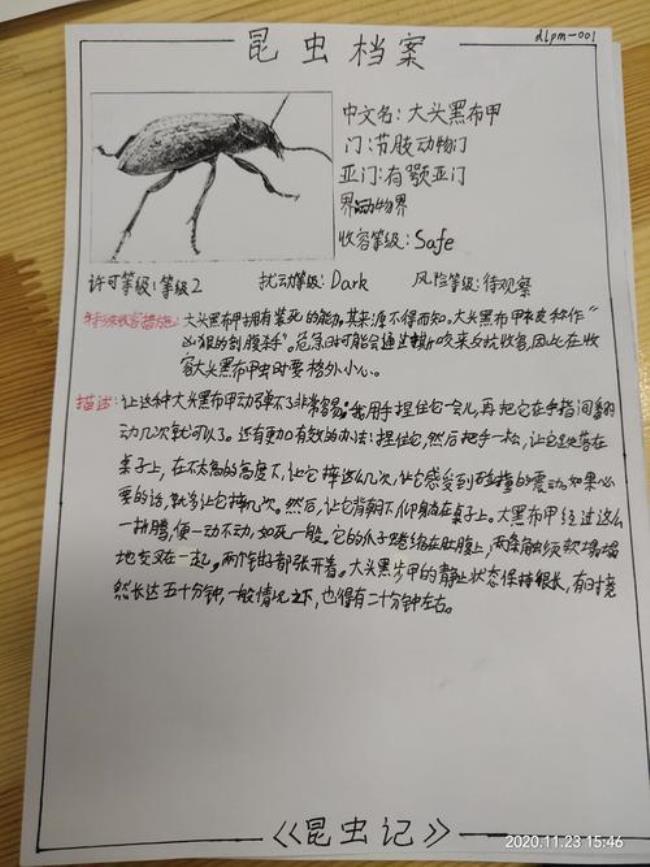 昆虫档案
dlpm-001
中文名：大头黑布甲
门：节肢动物门
亚门：有颚亚门
界：动物界
收容等级：Safe
许可等级：等级2 扰动等级：Dark 风险等级：待观察
特殊收容措施：大头黑布甲拥有装死的能力，其来源不得而知。大头黑布甲被称作“
凶狠的剖腹杀手”。危急时可能会通过撕咬来反抗收容，因此在收
容大头黑布甲虫时要格外小心。
描述：让这种大头黑布甲动弹不了非常容易：我用手捏住它一会儿，再把它在手指间翻
动几次就可以了。还有更加有效的办法：捏住它，然后把手一松，让它跌落在
桌子上，在不太高的高度下，让它摔这么几次，让它感受到碰撞的震动，如果必
要的话，就多让它摔几次。然后，让它背朝下，仰躺在桌子上。大黑布甲经过这么
一折腾，便一动不动，如死一般。它的爪子蜷缩在肚腹上，两条触须软塌塌
地交叉在一起，两个钳子都张开着。大头黑步甲的静止状态保持很长，有时竟
然长达五十分钟，一般情况之下，也得有二十分钟左右。
《昆虫记》
2020.11.23 15:46